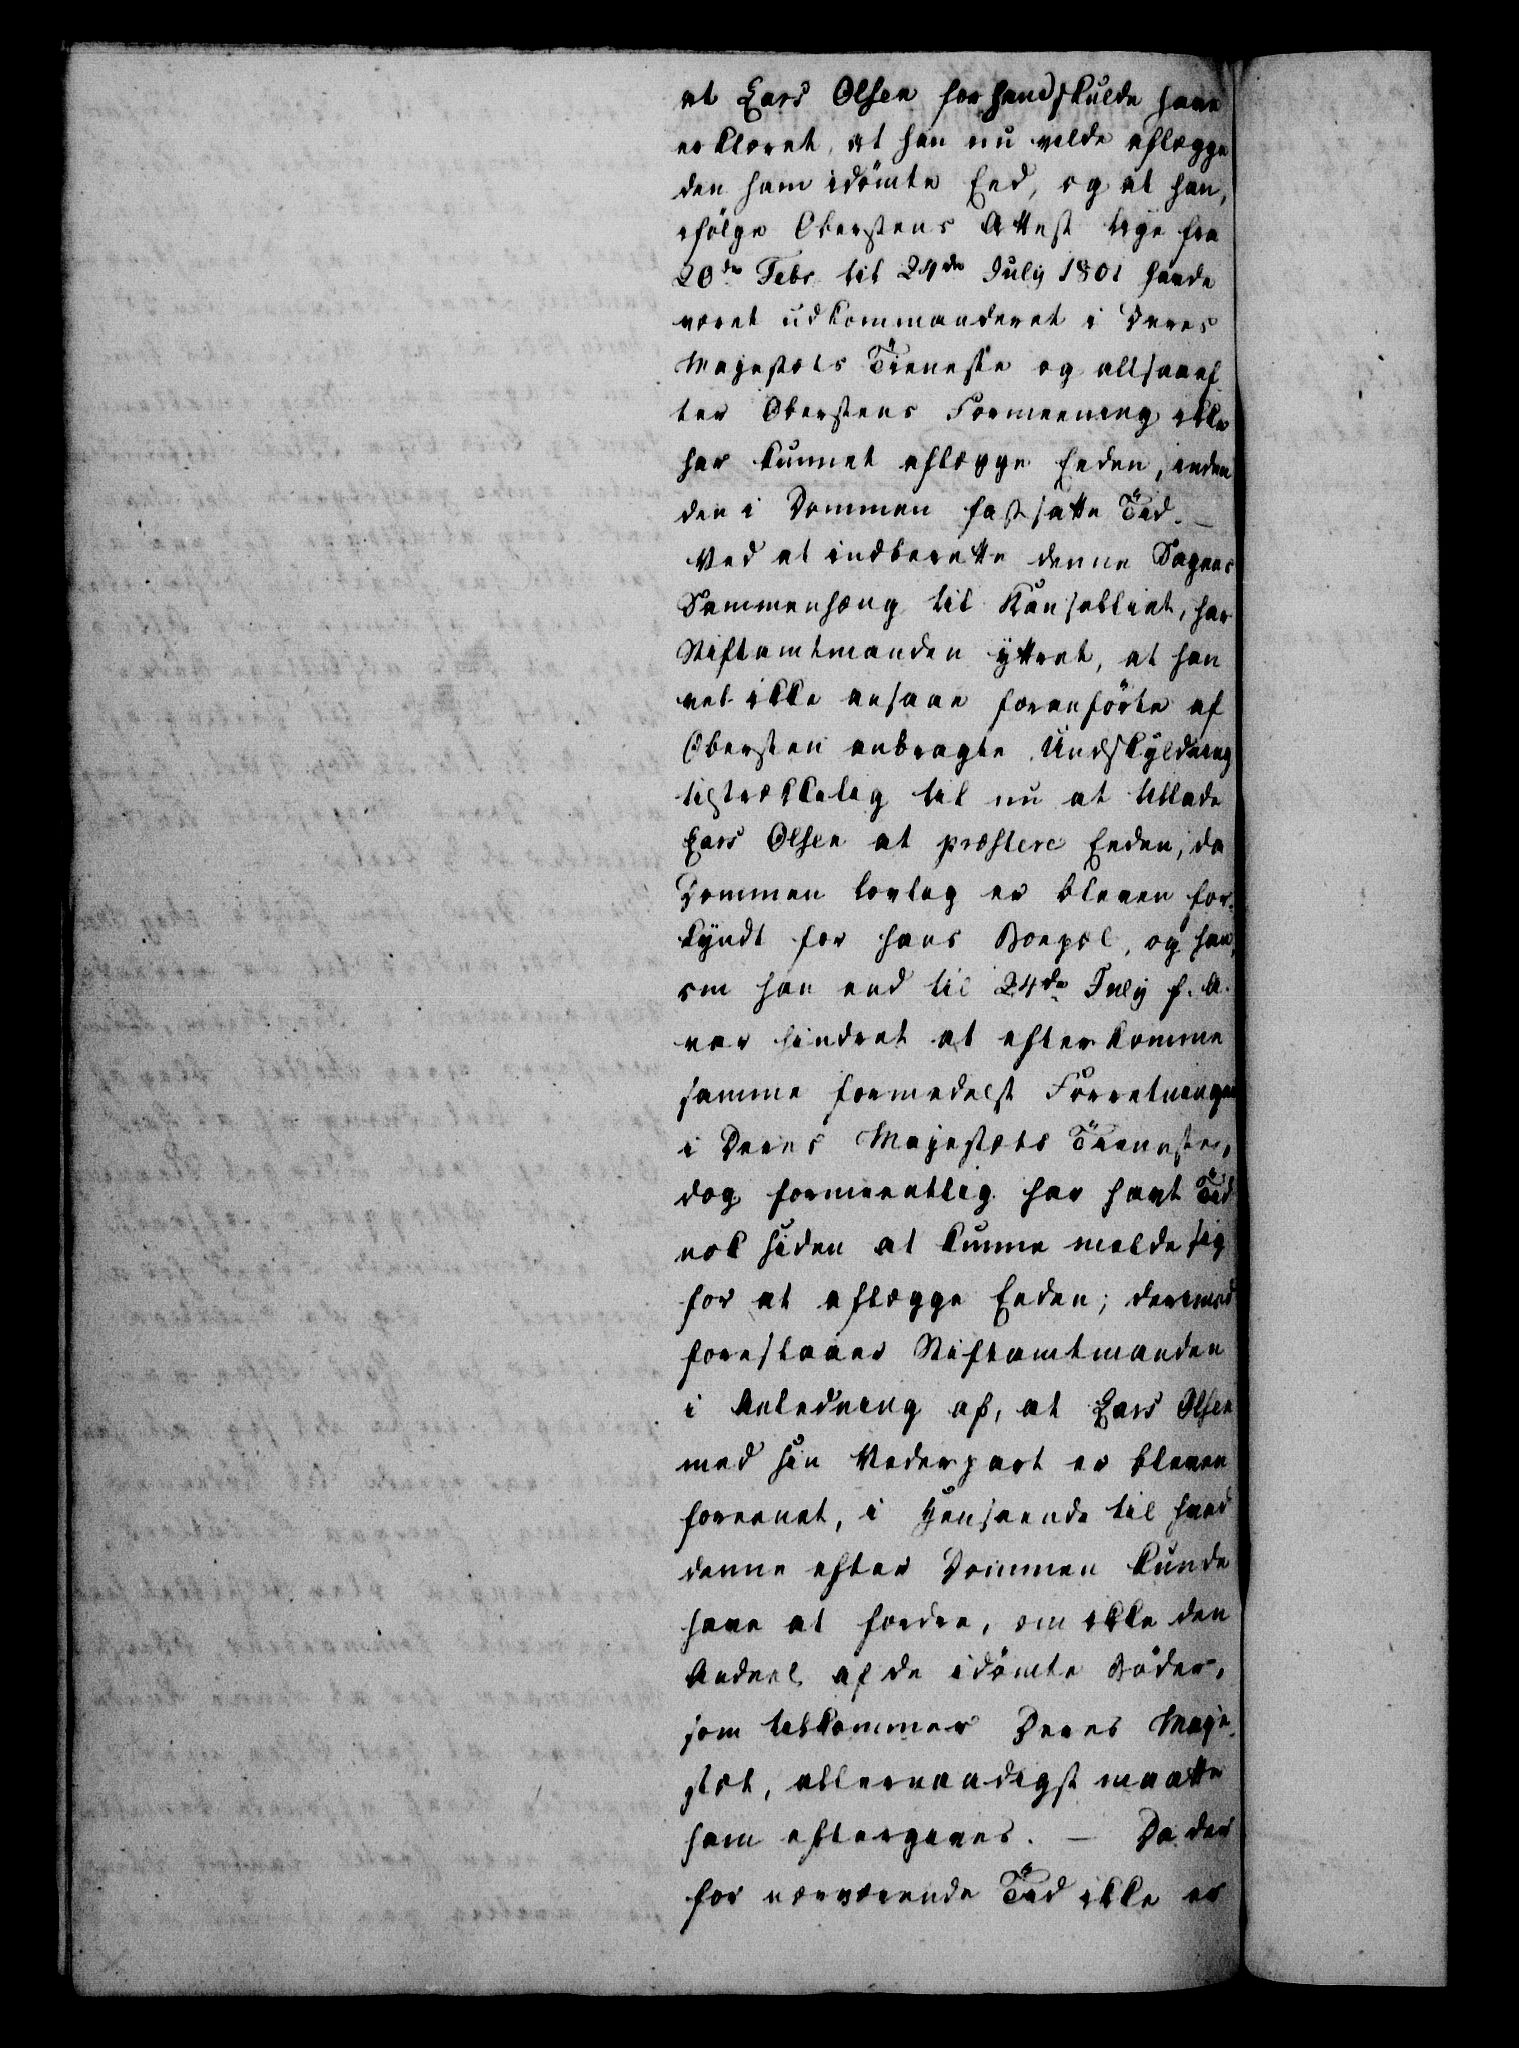 at Lars Olsen for ham skulde have
erklæret, at han nu vilde aflægge
den ham idömte Eed, og at han,
ifölge Oberstens Attest lige fra
20de Febr. til 24de July 1801 havde
været udkommanderet i Deres
Majestæts Tieneste og altsaa ef-
ter Oberstens Formeening ikke
har kunnet aflægge Eeden, inden
den i Dommen fastsatte Tid. —
Ved at indberette denne Sagens
Sammenhæng til Kanselliet, har
Stiftamtmanden yttret, at han
vel ikke ansaae foranförte af
Obersten anbragte Undskyldning
tilstrækkelig til nu at tillade
Lars Olsen at præstere Eeden, da
Dommen lovlig er bleven for-
kyndt for hans Boepæl, og han,
om han end til 24de July f. A.
var hindret at efterkomme
samme formedelst Forretninger
i Deres Majestæts Tieneste,
dog formeentlig har havt Tid
nok siden at kunne melde sig
for at aflægge Eeden; derimod
forestaaer Stiftamtmanden
i Anledning af, at Lars Olsen
med sin Vederpart er bleven
foreenet, i Henseende til hvad
denne efter Dommen kunde
have at fordre, om ikke den
Andeel af de idömte Böder,
som tilkommer Deres Maje-
stæt, allernaadigst maatte
ham eftergives. — Da der
for nærværende Tid ikke er